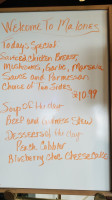 Welcome To Malones
Todays Special
Sauteed Chicken Breast,
Mushrooms, Garlic, Marsala
Sauce and Parmesan
Choice of Two Sides
$10.99
Soup of the Day
Beef and Stew
Desserts of the Day
Peach Cobbler
Blueberry Choc Cheesecake